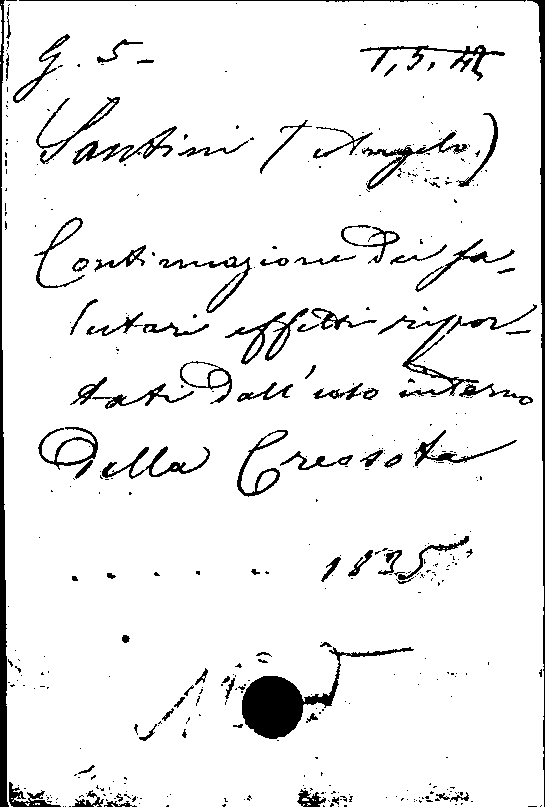 G. 5-
Santini (Angelo.)
Continuazione dei sa-
lutari effetti ripor-
tati dall'uso interno
della Creosota
. . . . . . 1835